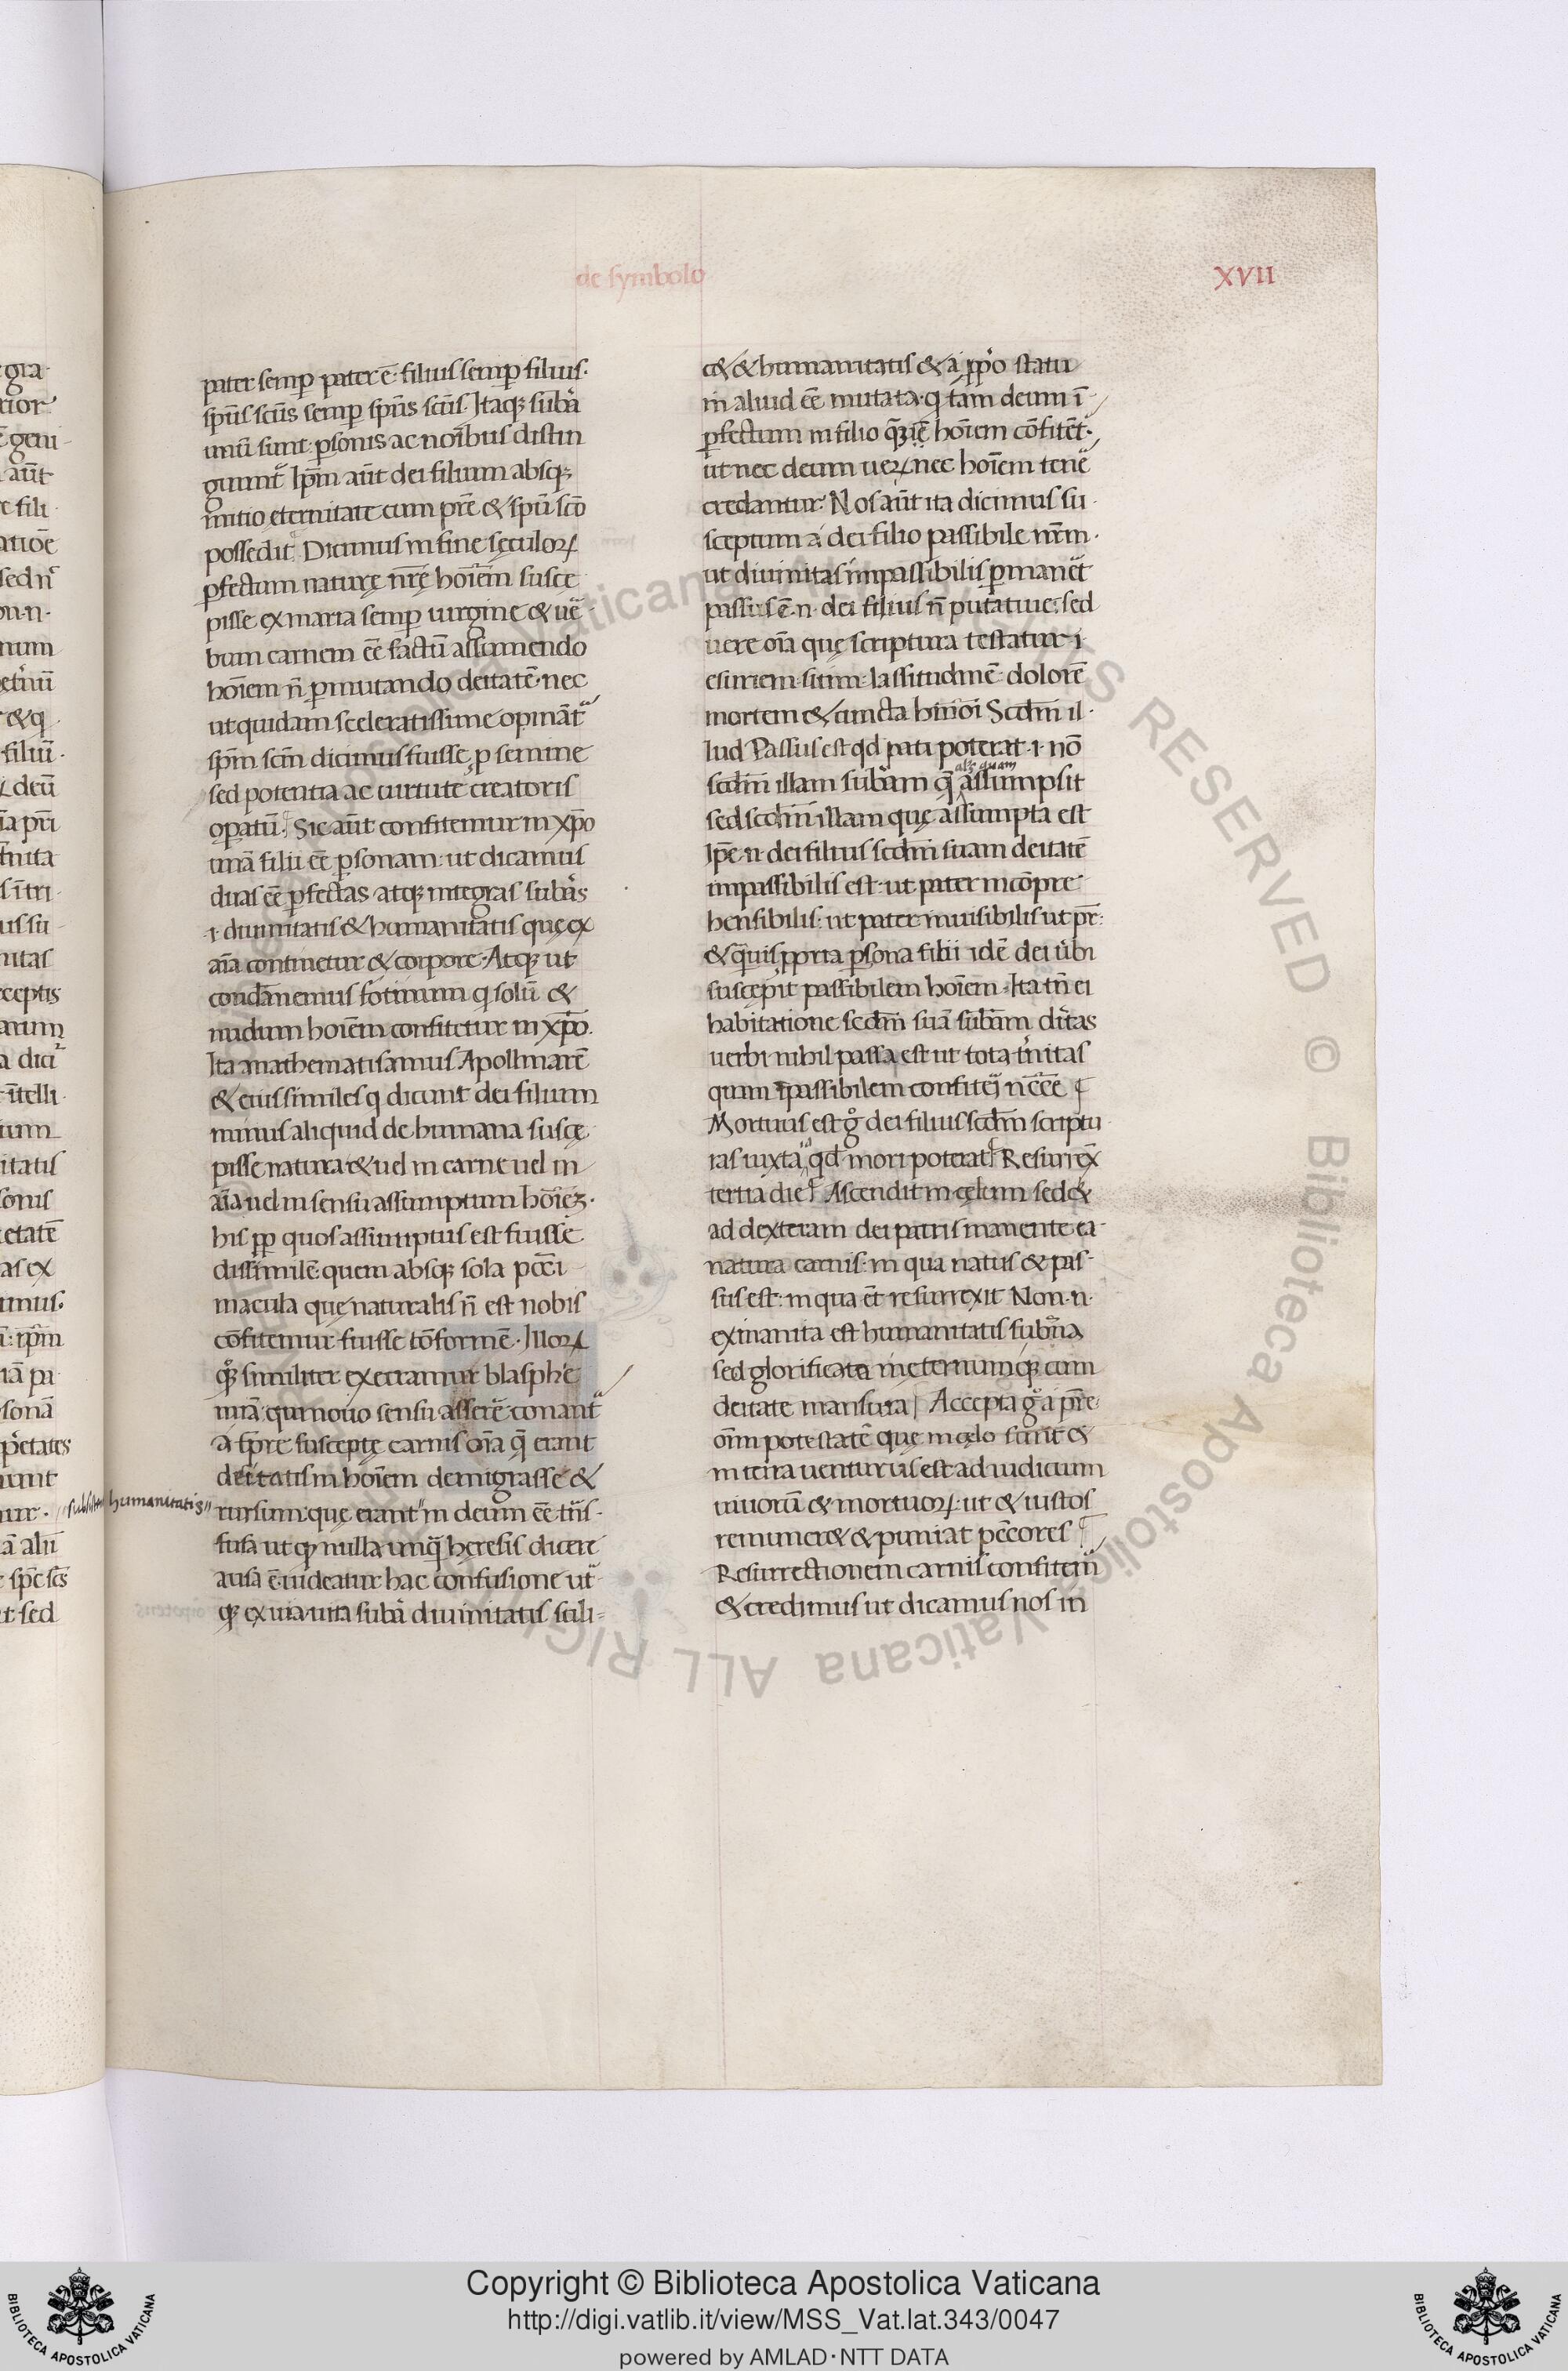 de symbolo
XVII
pater semꝑ pater ē· filius semꝑ filius·
sp̄us sc̄us semꝑ sp̄us sc̄us· Itaqꝫ subā
unū sunt· ꝑsonis ac noībus distin
guunt᷑ Ip̄m aūt dei filium absqꝫ
initio eternitate cum pr̄e & sp̄u sc̄o
possedit Dicimus in fine sęculoꝝ
ꝑfectum naturę nr̄ę hoīem susce
pisse ex maria semꝑ uirgine & ue᷑
bum carnem eē factū assumendo
hoīem n̄ ꝑmutando deitatē· nec
ut quidam sceleratissime opināt᷑
sp̄m sc̄m dicimus fuisse ꝑ semine
sed potentia ac uirtute creatoris
oꝑatū· Sic aūt confitemur in xp̄o
unā filii eē ꝑsonam· ut dicamus
duas eē ꝑfectas atqꝫ integras subas
·i· diuinitatis & humanitatis quę ex
aīa continetur & corpore· Atqꝫ ut
condānemus fotinum q solū &
nudum hoīem confitetur in xp̄o·
Ita anathematisamus Apollinarē
& eius similes q dicunt dei filium
minus aliquid de humana suscę
pisse natura & uel in carne uel in
aīa uel in sensu assumptum hoīeꝫ·
his ꝓp quos assumptus est fuisse
dissimilē· quem absqꝫ sola pcc̄i
macula quę naturalis n̄ est nobis
cōfitemur fuisse cōformē· Illoꝝ
qꝫ similiter execramur blasphe
miā· qui nouo sensu assere᷑ conant᷑
a tp̄re susceptę carnis oīa q̄ erant
deitatis in hoīem demigrasse &
rursum· quę erant in deum eē tn̄s·
substan humanitatis
fusa ut qꝫ nulla unq̄ hęresis dicere
ausa ē· uideatur hac confusione ut᷑
qꝫ exinanita subā diuinitatis scili-
c& & humanitatis & a ꝓp̄o statu
in aliud eē mutata· q tam deum ī
ꝑfectum in filio quā hoīem cōfitēt᷑·
ut nec deum ueꝝ nec hoīem tene᷑
credantur· Nos aūt ita dicimus su
sceptum a dei filio passibile nr̄m·
ut diuinitas impassibilis ꝑmanēt
passus ē· n· dei filius n̄ putatiue· sed
uere oīa quę scriptura testatur ·i·
esuriem· sitim· lassitudinē· dolorē
mortem & cuncta hm̄oi Scdm̄ il·
lud Passus est qd pati poterat ·i· nō
al's quam
scdm̄ illam subam q̄ assumpsit
sed scdm̄ illam quę assumpta est
Ip̄e· n· dei filius scdm̄ suam deitatē
impassibilis est· ut pater incōpre
hensibilis· ut pater inuisibilis ut pr̄
& q̄uis ꝓpria ꝑsona filii idē dei ūbi
suscępit passibilem hoīem· Ita tn̄ ei
habitatione scdm̄ suā subam ditas
uerbi nihil passa est ut tota t̄nitas
quam īpassibilem confite᷑i nēcē ē
Mortuus est g̊ dei filius scdm̄ scriptu
ras iuxta qd mori poterat Resurrex
tertia die Ascendit in cęlum sed&
ad dexteram dei patris manente ea
natura carnis· in qua natus & pas·
sus est· in qua ēt resurrexit Non· n·
exinanita est humanitatis subna
sed glorificata in eternumqꝫ cum
deitate mansura Accepta g̊ a pr̄e
om̄i potestatē que in cęlo sunt &
in terra uenturus est ad iudicium
uiuorū & mortuoꝝ· ut & iustos
remuner& & puniat pēcores
Resurrectionem carnis confitem᷑
& credimus ut dicamus nos in
Copyright © Biblioteca Apostolica Vaticana
http://digi.vatlib.it/view/MSS_Vat.lat.343/0047
powered by AMLAD·NTT DATA